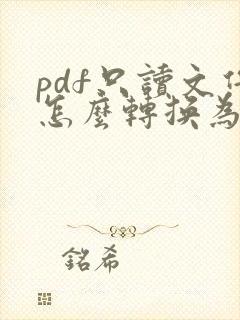 pdf只讀文件
怎麼轉換為
銘希